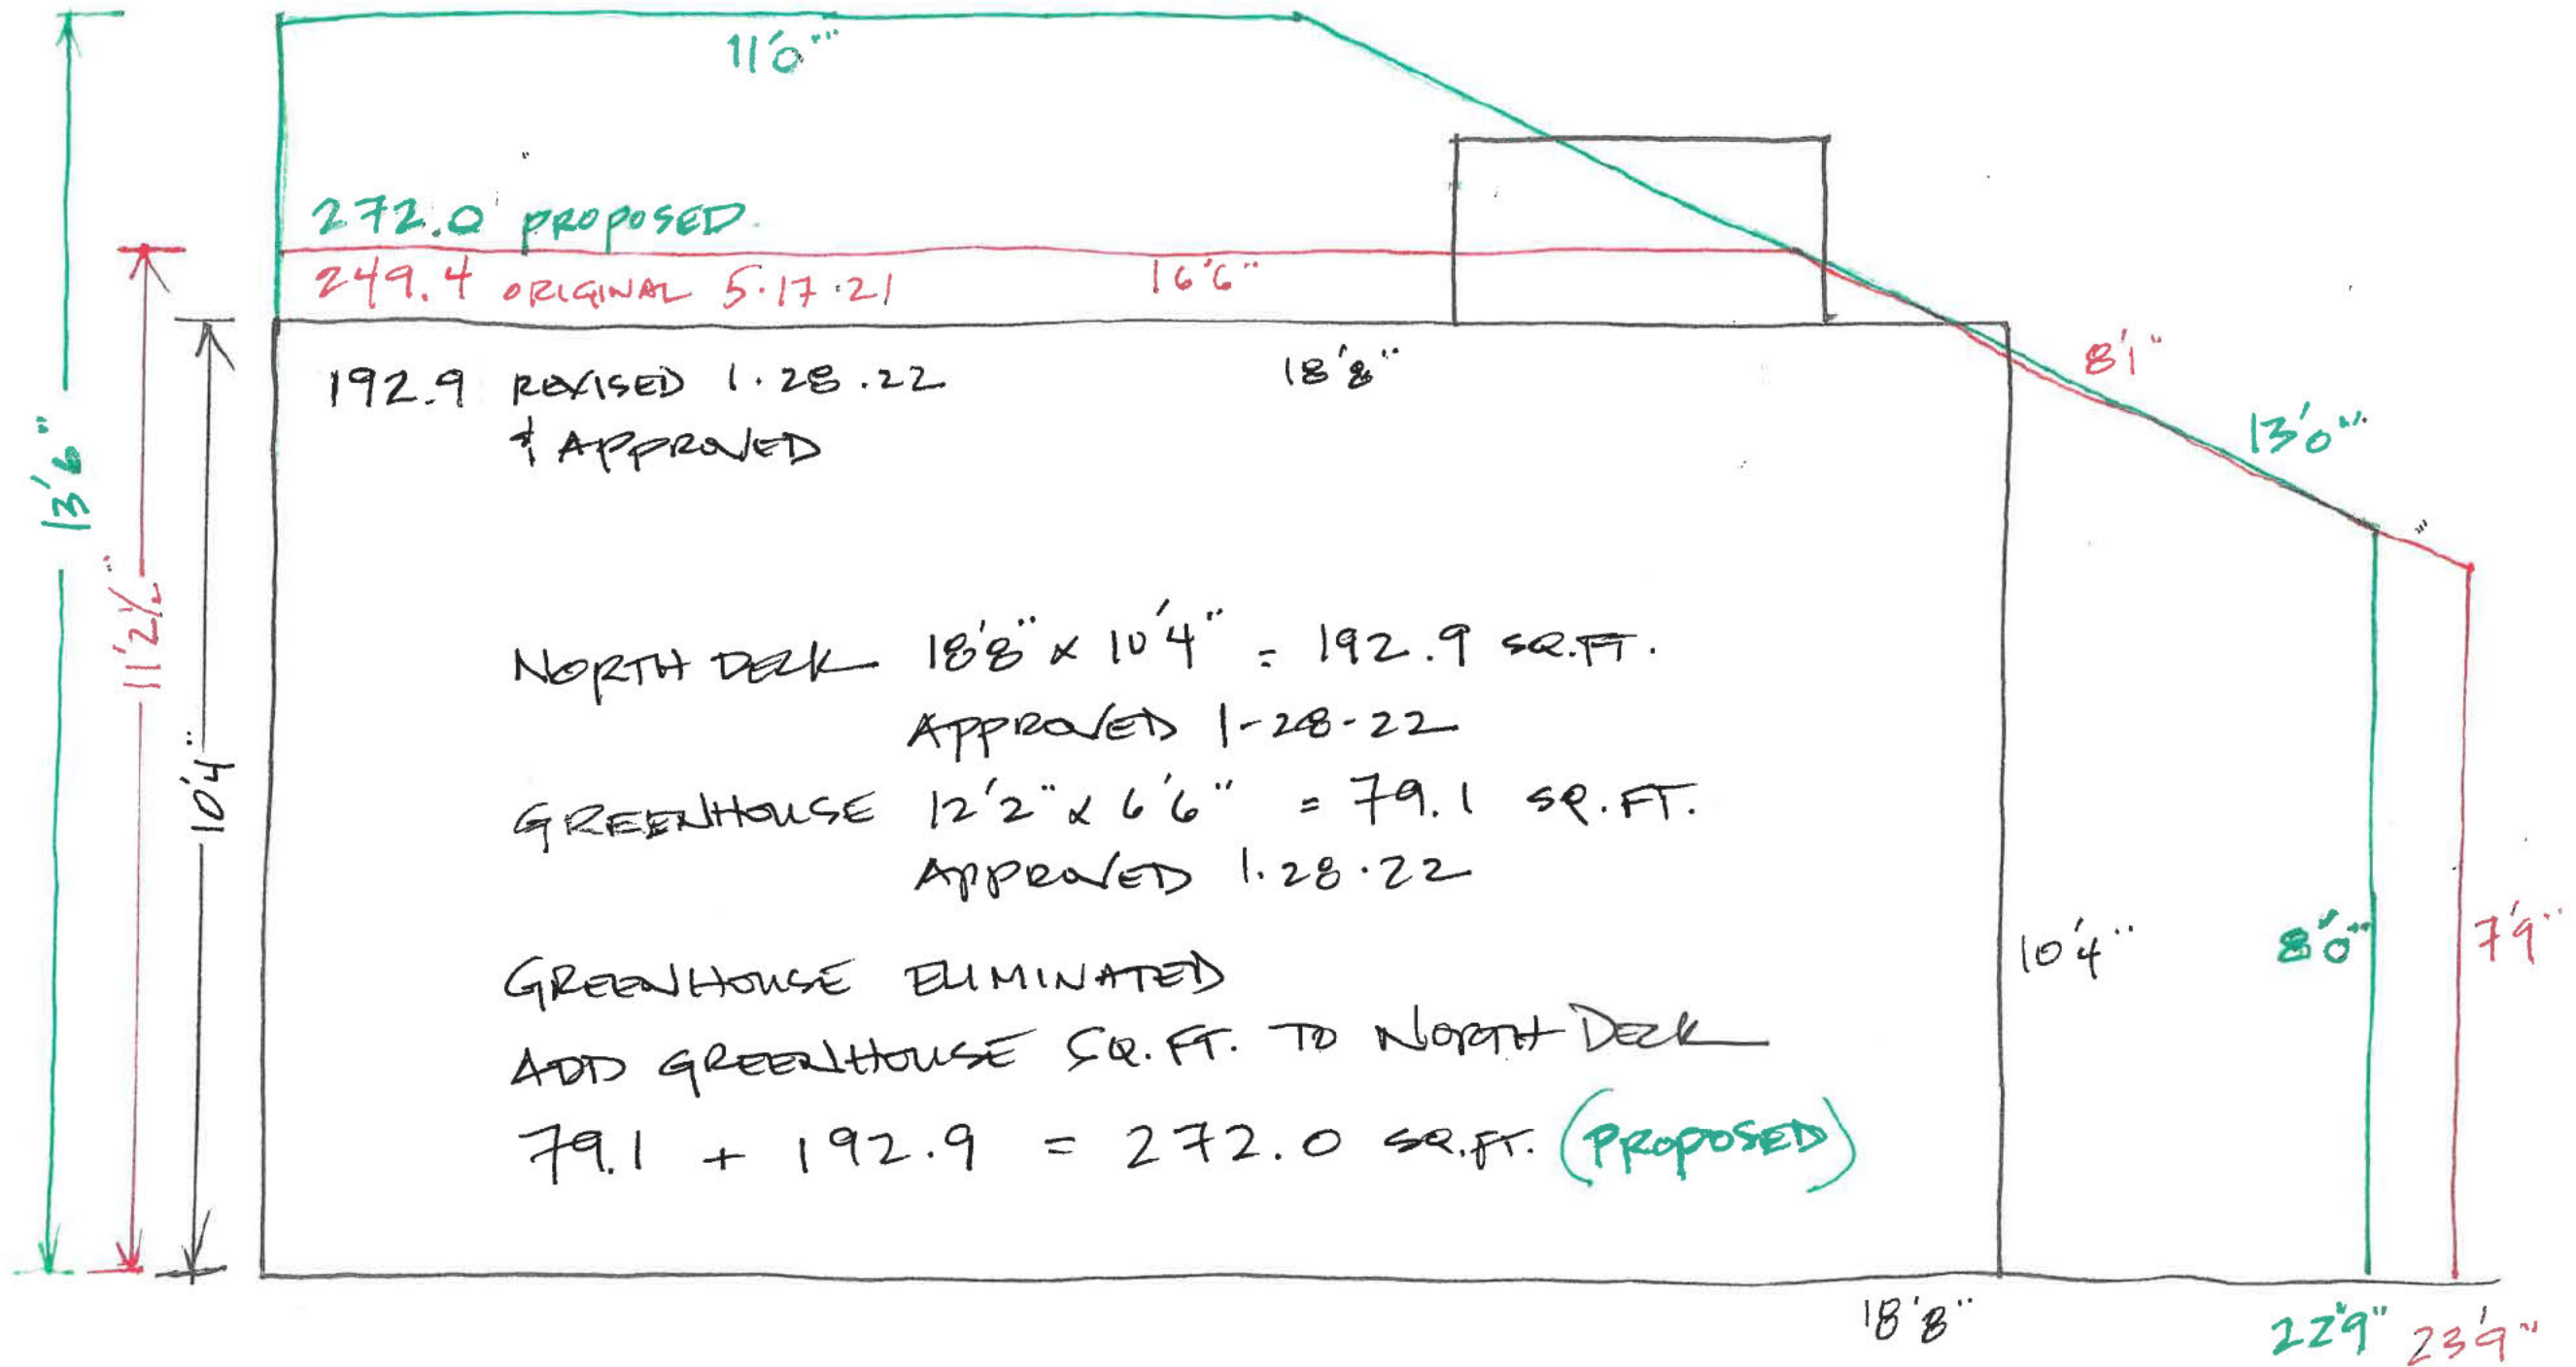 11'0"
272.0 PROPOSED
249.4 ORIGINAL 5.17.21
16'6"
192.9 REVISED 1.28.22
& APPROVED
18'8"
8'1"
13'0"
13'6"
11'2½"
10'4"
NORTH DECK 18'8" x 10'4" = 192.9 SQ.FT.
APPROVED 1-28-22
GREENHOUSE 12'2" x 6'6" = 79.1 SQ.FT.
APPROVED 1.28.22
GREENHOUSE ELIMINATED
ADD GREENHOUSE SQ.FT. TO NORTH DECK
79.1 + 192.9 = 272.0 SQ.FT. (PROPOSED)
10'4"
8'0"
7'9"
18'8"
22'9"
23'9"